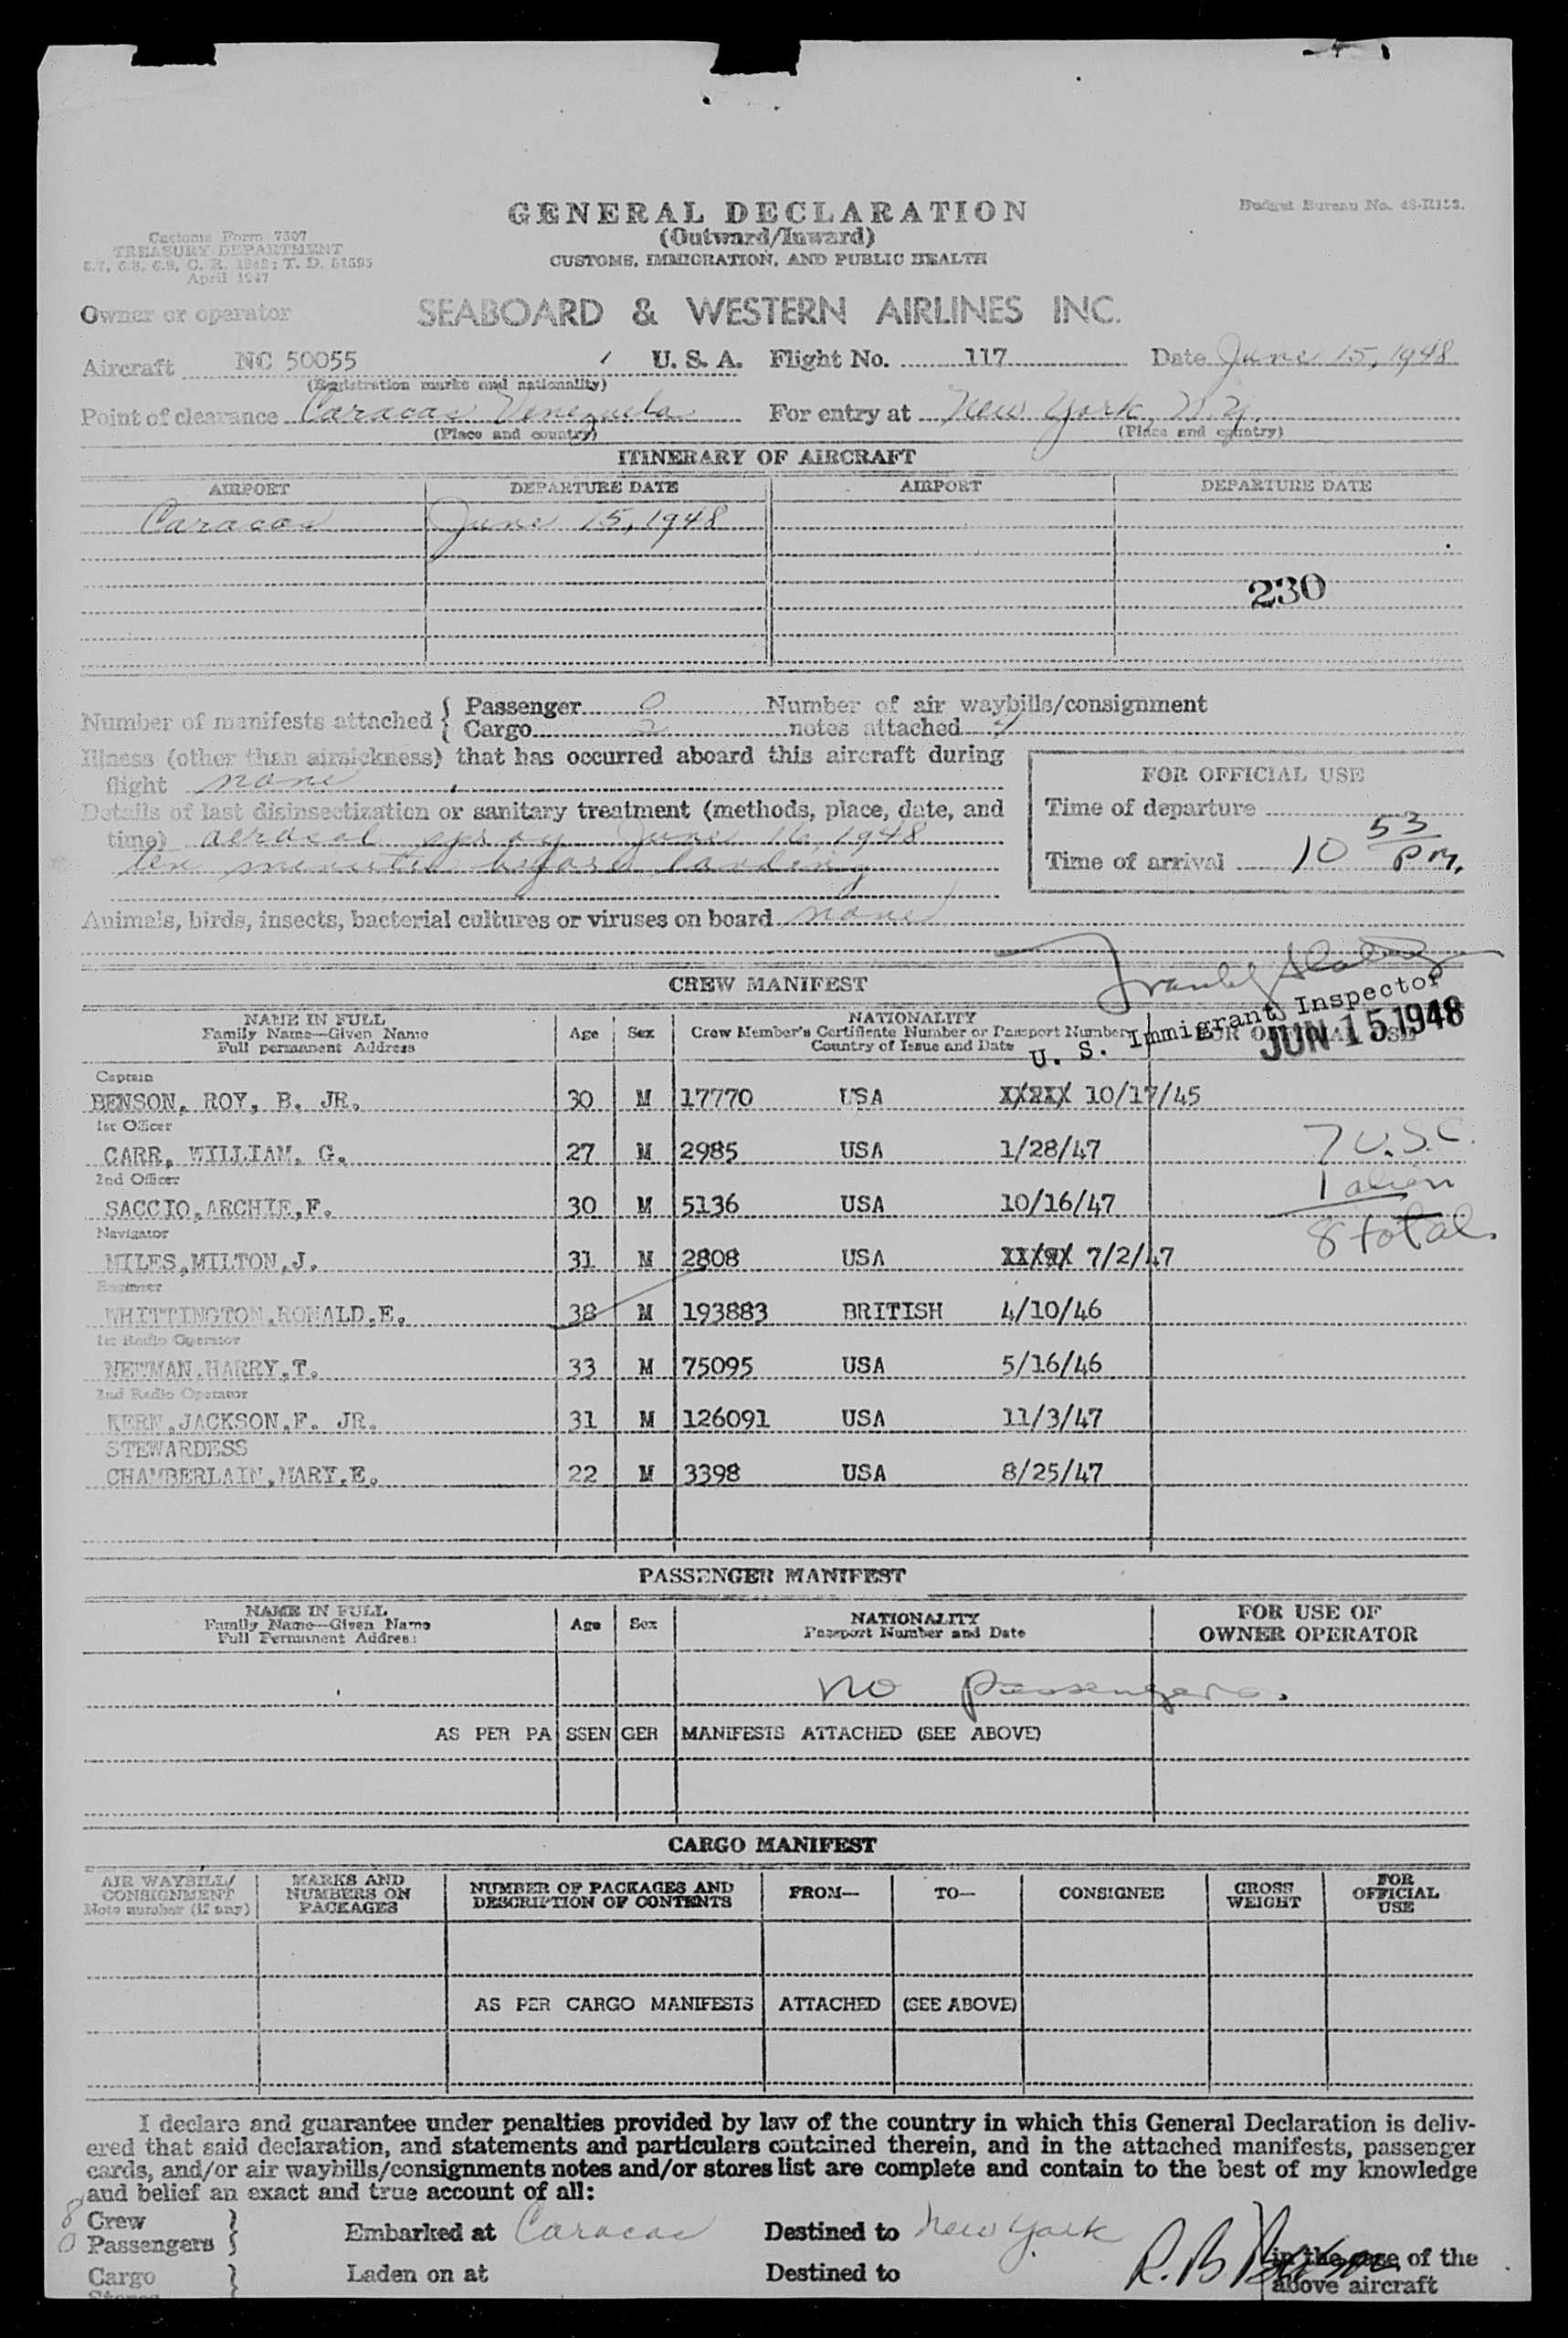 GENERAL DECLARATION
(Outward/Inward)
CUSTOMS, IMMIGRATION, AND PUBLIC HEALTH
Budget Bureau No. 48-R153.
Customs Form 7507
TREASURY DEPARTMENT
6.7, 6.8, 6.9, C. R. 1943; T. D. 51595
April 1947
Owner or operator SEABOARD & WESTERN AIRLINES INC.
Aircraft NC 50055 U. S. A. Flight No. 117 Date June 15, 1948
(Registration marks and nationality)
Point of clearance Caracas Venezuela For entry at New York N.Y.
(Place and country) (Place and country)
ITINERARY OF AIRCRAFT
AIRPORT DEPARTURE DATE AIRPORT DEPARTURE DATE
Caracas June 15, 1948
230
Number of manifests attached { Passenger 0 Number of air waybills/consignment
Cargo 2 notes attached
Illness (other than airsickness) that has occurred aboard this aircraft during
flight none
Details of last disinsectization or sanitary treatment (methods, place, date, and
time) aerosol spray June 16, 1948
ten minutes before landing
FOR OFFICIAL USE
Time of departure
Time of arrival 10 53 P M.
Animals, birds, insects, bacterial cultures or viruses on board none
CREW MANIFEST
U. S. Immigrant Inspector
JUN 15 1948
NAME IN FULL
Family Name—Given Name
Full permanent Address
Age Sex
NATIONALITY
Crew Member's Certificate Number or Passport Number
Country of Issue and Date
FOR OFFICIAL USE
Captain
BENSON, ROY, B. JR. 30 M 17770 USA 10/17/45
1st Officer
CARR, WILLIAM, G. 27 M 2985 USA 1/28/47
7 U.S.C.
2nd Officer
SACCIO,ARCHIE,F. 30 M 5136 USA 10/16/47
1 alien
8 total.
Navigator
MILES,MILTON,J. 31 M 2808 USA 7/2/47
Engineer
WHITTINGTON,RONALD,E. 38 M 193883 BRITISH 4/10/46
1st Radio Operator
NEWMAN,HARRY,T. 33 M 75095 USA 5/16/46
2nd Radio Operator
KERN,JACKSON,F. JR. 31 M 126091 USA 11/3/47
STEWARDESS
CHAMBERLAIN,MARY,E. 22 M 3398 USA 8/25/47
PASSENGER MANIFEST
NAME IN FULL
Family Name—Given Name
Full Permanent Address
Age Sex
NATIONALITY
Passport Number and Date
FOR USE OF
OWNER OPERATOR
No passengers.
AS PER PASSENGER MANIFESTS ATTACHED (SEE ABOVE)
CARGO MANIFEST
AIR WAYBILL/
CONSIGNMENT
Note number (if any)
MARKS AND
NUMBERS ON
PACKAGES
NUMBER OF PACKAGES AND
DESCRIPTION OF CONTENTS
FROM— TO— CONSIGNEE
GROSS
WEIGHT
FOR
OFFICIAL
USE
AS PER CARGO MANIFESTS ATTACHED (SEE ABOVE)
I declare and guarantee under penalties provided by law of the country in which this General Declaration is deliv-
ered that said declaration, and statements and particulars contained therein, and in the attached manifests, passenger
cards, and/or air waybills/consignments notes and/or stores list are complete and contain to the best of my knowledge
and belief an exact and true account of all:
8 Crew
0 Passengers } Embarked at Caracas Destined to New York
R. B. Benson
in the case of the
Cargo } Laden on at Destined to
above aircraft
Stores